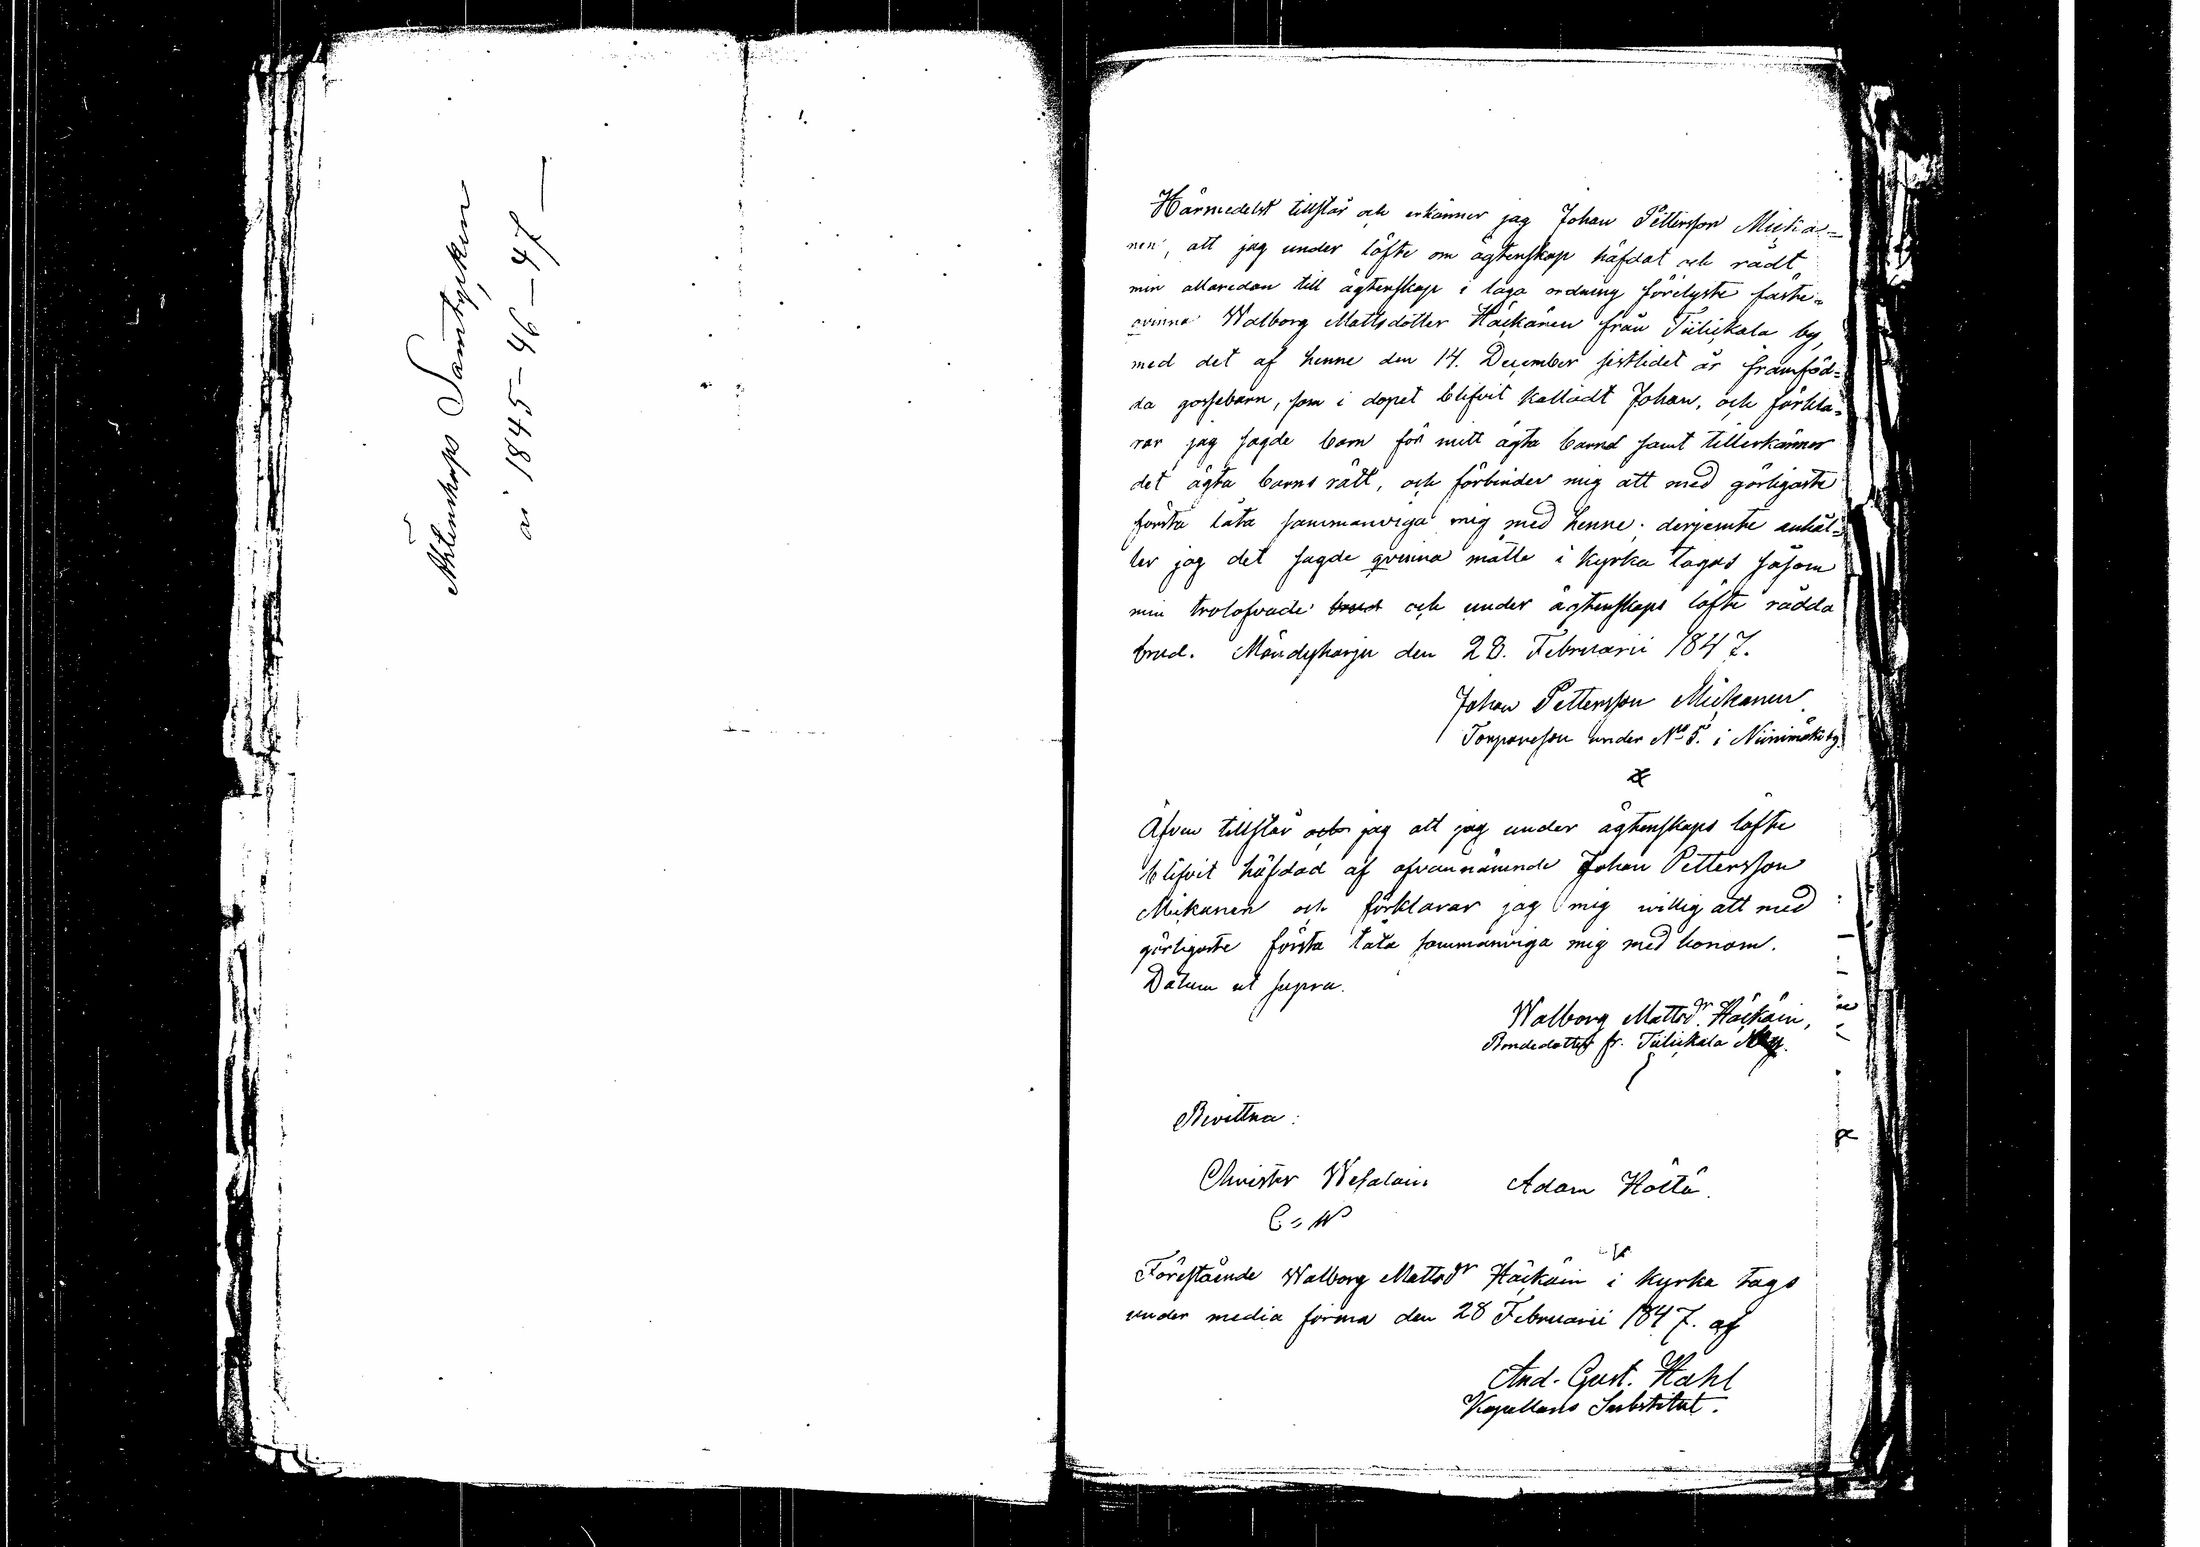 Äktenskaps Samtycken
år 1845-46-47
Härmedelst tillstår och erkänner jag Johan Pettersson Mieka=
nen, att jag under löfte om ägtenskap häfdat och rådt
min allaredan till ägtenskap i laga ordning förelyste fäste=
qvinna Walborg Mattsdotter Häckänen från Tiilickala by,
med det af henne den 14. December sistledet år framföd=
da gossebarn, som i dopet blifvit kalladt Johan, och förkla=
rar jag sagde barn för mitt ägta barnd samt tillerkänner
det ägta barns rätt, och förbinder mig att med görligaste
första låta sammanviga mig med henne; derjemte anhål=
ler jag det sagde qvinna måtte i kyrka tagas såsom
min trolofvade och under ägtenskaps löfte rådda
brud. Mändyharju den 28. Februarii 1847.
Johan Pettersson Mickanen
Torpareson under No 5. i Niinimäki by.
Äfven tillstår och jag att jag under ägtenskaps löfte
blifvit häfdad af ofvannämnde Johan Pettersson
Mickanen och förklarar jag mig willig att med
görligaste första låta sammanviga mig med honom.
Datum ut supra.
Walborg Mattsdr Häckäin,
Bondedotter fr. Tiilickala by.
Bevittna:
Christer Wesalain Adam Höltä.
C = W
Förestående Walborg Mattsdr Häckäin i kyrka tags
under media forma den 28 Februarii 1847. af
And. Gust. Hahl
Kapellans Substitut.